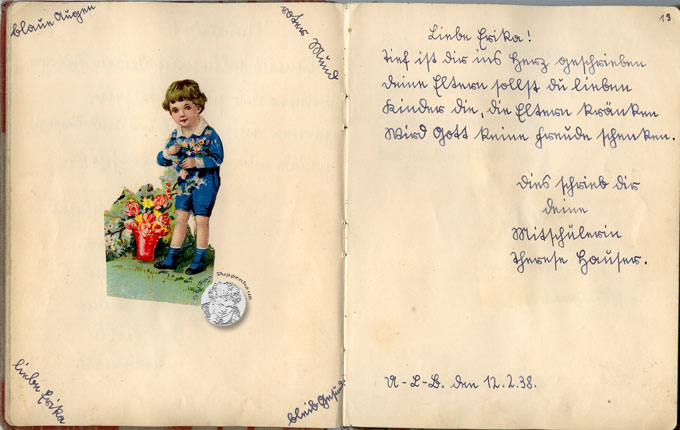 blaue Augen
roter Mund
liebe Erika
bleib Gesund
Puppenhaus
19
Liebe Erika!
Tief ist dir ins Herz geschrieben
deine Eltern sollst du lieben
Kinder die, die Eltern kränken
Wird Gott keine Freude schenken.
Dies schrieb dir
deine
Mitschülerin
Therese Hauser.
A-L-B. den 12.2.38.